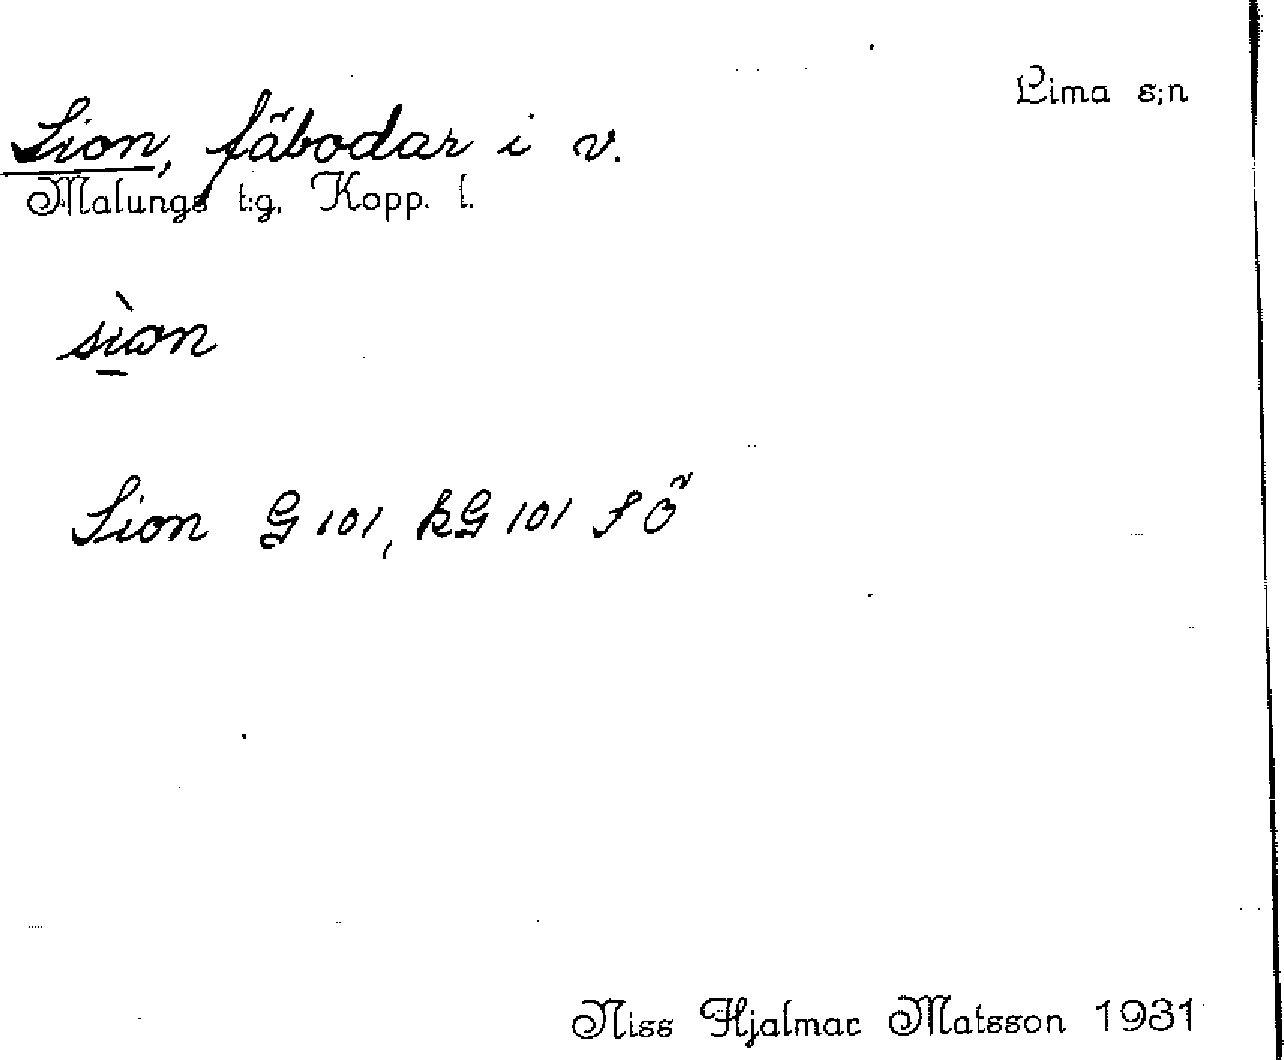 Lima s;n
Sion, fäbodar i v.
Malungs t:g, Kopp. l.
sìon
Sion G 101, kG 101 S Ö
Niss Hjalmar Matsson 1931